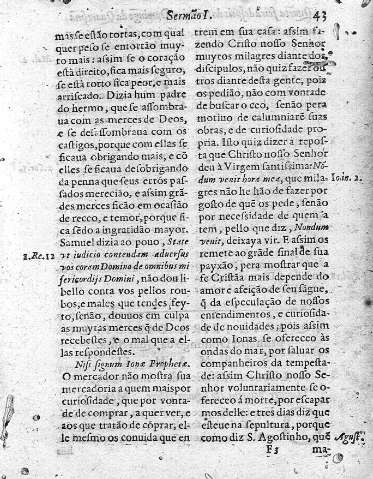 Sermão I. 43
mas se estão tortas, com qual
quer peso se entortão muy-
to mais: assim se o coração
està direito, fica mais seguro,
se està torto fica peor, e mais
arriscado. Dizia hum padre
do hermo, que se assombra-
ua com as merces de Deos,
e se desassombraua com os
castigos, porque com ellas se
ficaua obrigando mais, e cõ
elles se ficaua desobrigando
da pena que seus erros pas-
sados merecião, e assim grã-
des merces ficão em ocasião
de recco, e temor, porque fi-
ca sẽdo a ingratidão mayor.
Samuel dizia ao pouo, State
1.Re.12 vt iudicio contendam aduersus
vos coram Domino de omnibus mi
sericordijs Domini, não dou li-
bello contra vos pellos rou-
bos, e males que tendes fey-
to, senão, douuos em culpa
as muytas merces q̃ de Deos
recebestes, e o mal que a el-
las respondestes.
Nisi signum Ionæ Prophetæ.
O mercador não mostra sua
mercadoria a quem mais por
curiosidade, que por vonta-
de de comprar, a quer ver, e
aos que tratão de cõprar, el-
le mesmo os conuida que en
trem em sua casa: assim fa-
zendo Cristo nosso Senhor
muyros milagres diante dos
discipulos, não quiz fazer ou
tros diante desta gente, pois
os pedião, não com vontade
de buscar o ceo, senão pera
motiuo de calumniarẽ suas
obras, e de curiosidade pro-
pria. Isto quiz dizer a repos-
ta que Christo nosso Senhor
deu à Virgem santissima: Nõ-
dum venit hora mea, que mila- Ioin. 2.
gres não he hão de fazer por
gosto de quẽ os pede, senão
por necessidade de quem a
tem, pello que diz, Nondum
venit, deixaya vir. E assim os
remete ao grãde sinal de sua
payxão, pera mostrar que a
fe Cristãa mais depende do
amor e afeição de seu sague,
q̃ da especulação de nossos
entendimentos, e curiosida-
de de nouidades; pois assim
como Ionas se ofereceo às
ondas do mar, por saluar os
companheiros da tempesta-
de: assim Christo nosso Se-
nhor voluntariamente se o-
fereceo á morte, por escapar
mos delle: e tres dias diz que
esteue na sepultura, porque
como diz S. Agostinho, quẽ Agust.
F3 ma-